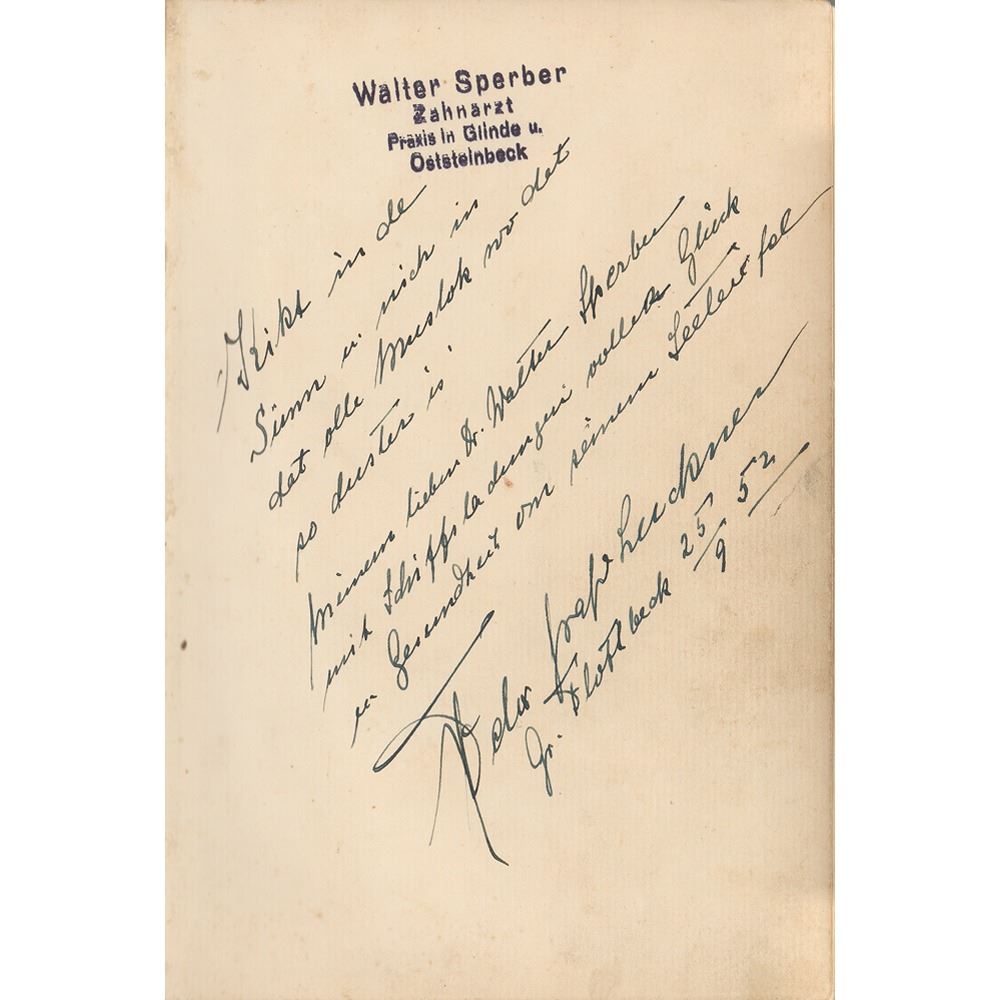 Walter Sperber
Zahnarzt
Praxis in Glinde u.
Oststeinbeck
Kikt in de
Sünn u. nich in
dat olle Muslok wo dat
so duster is.
Meinem lieben Dr. Walter Sperber
mit Schiffsladungen voller Glück
u Gesundheit von seinem Seeteufel
Felix Graf Luckner
Gr. Flottbeck 25/9 52